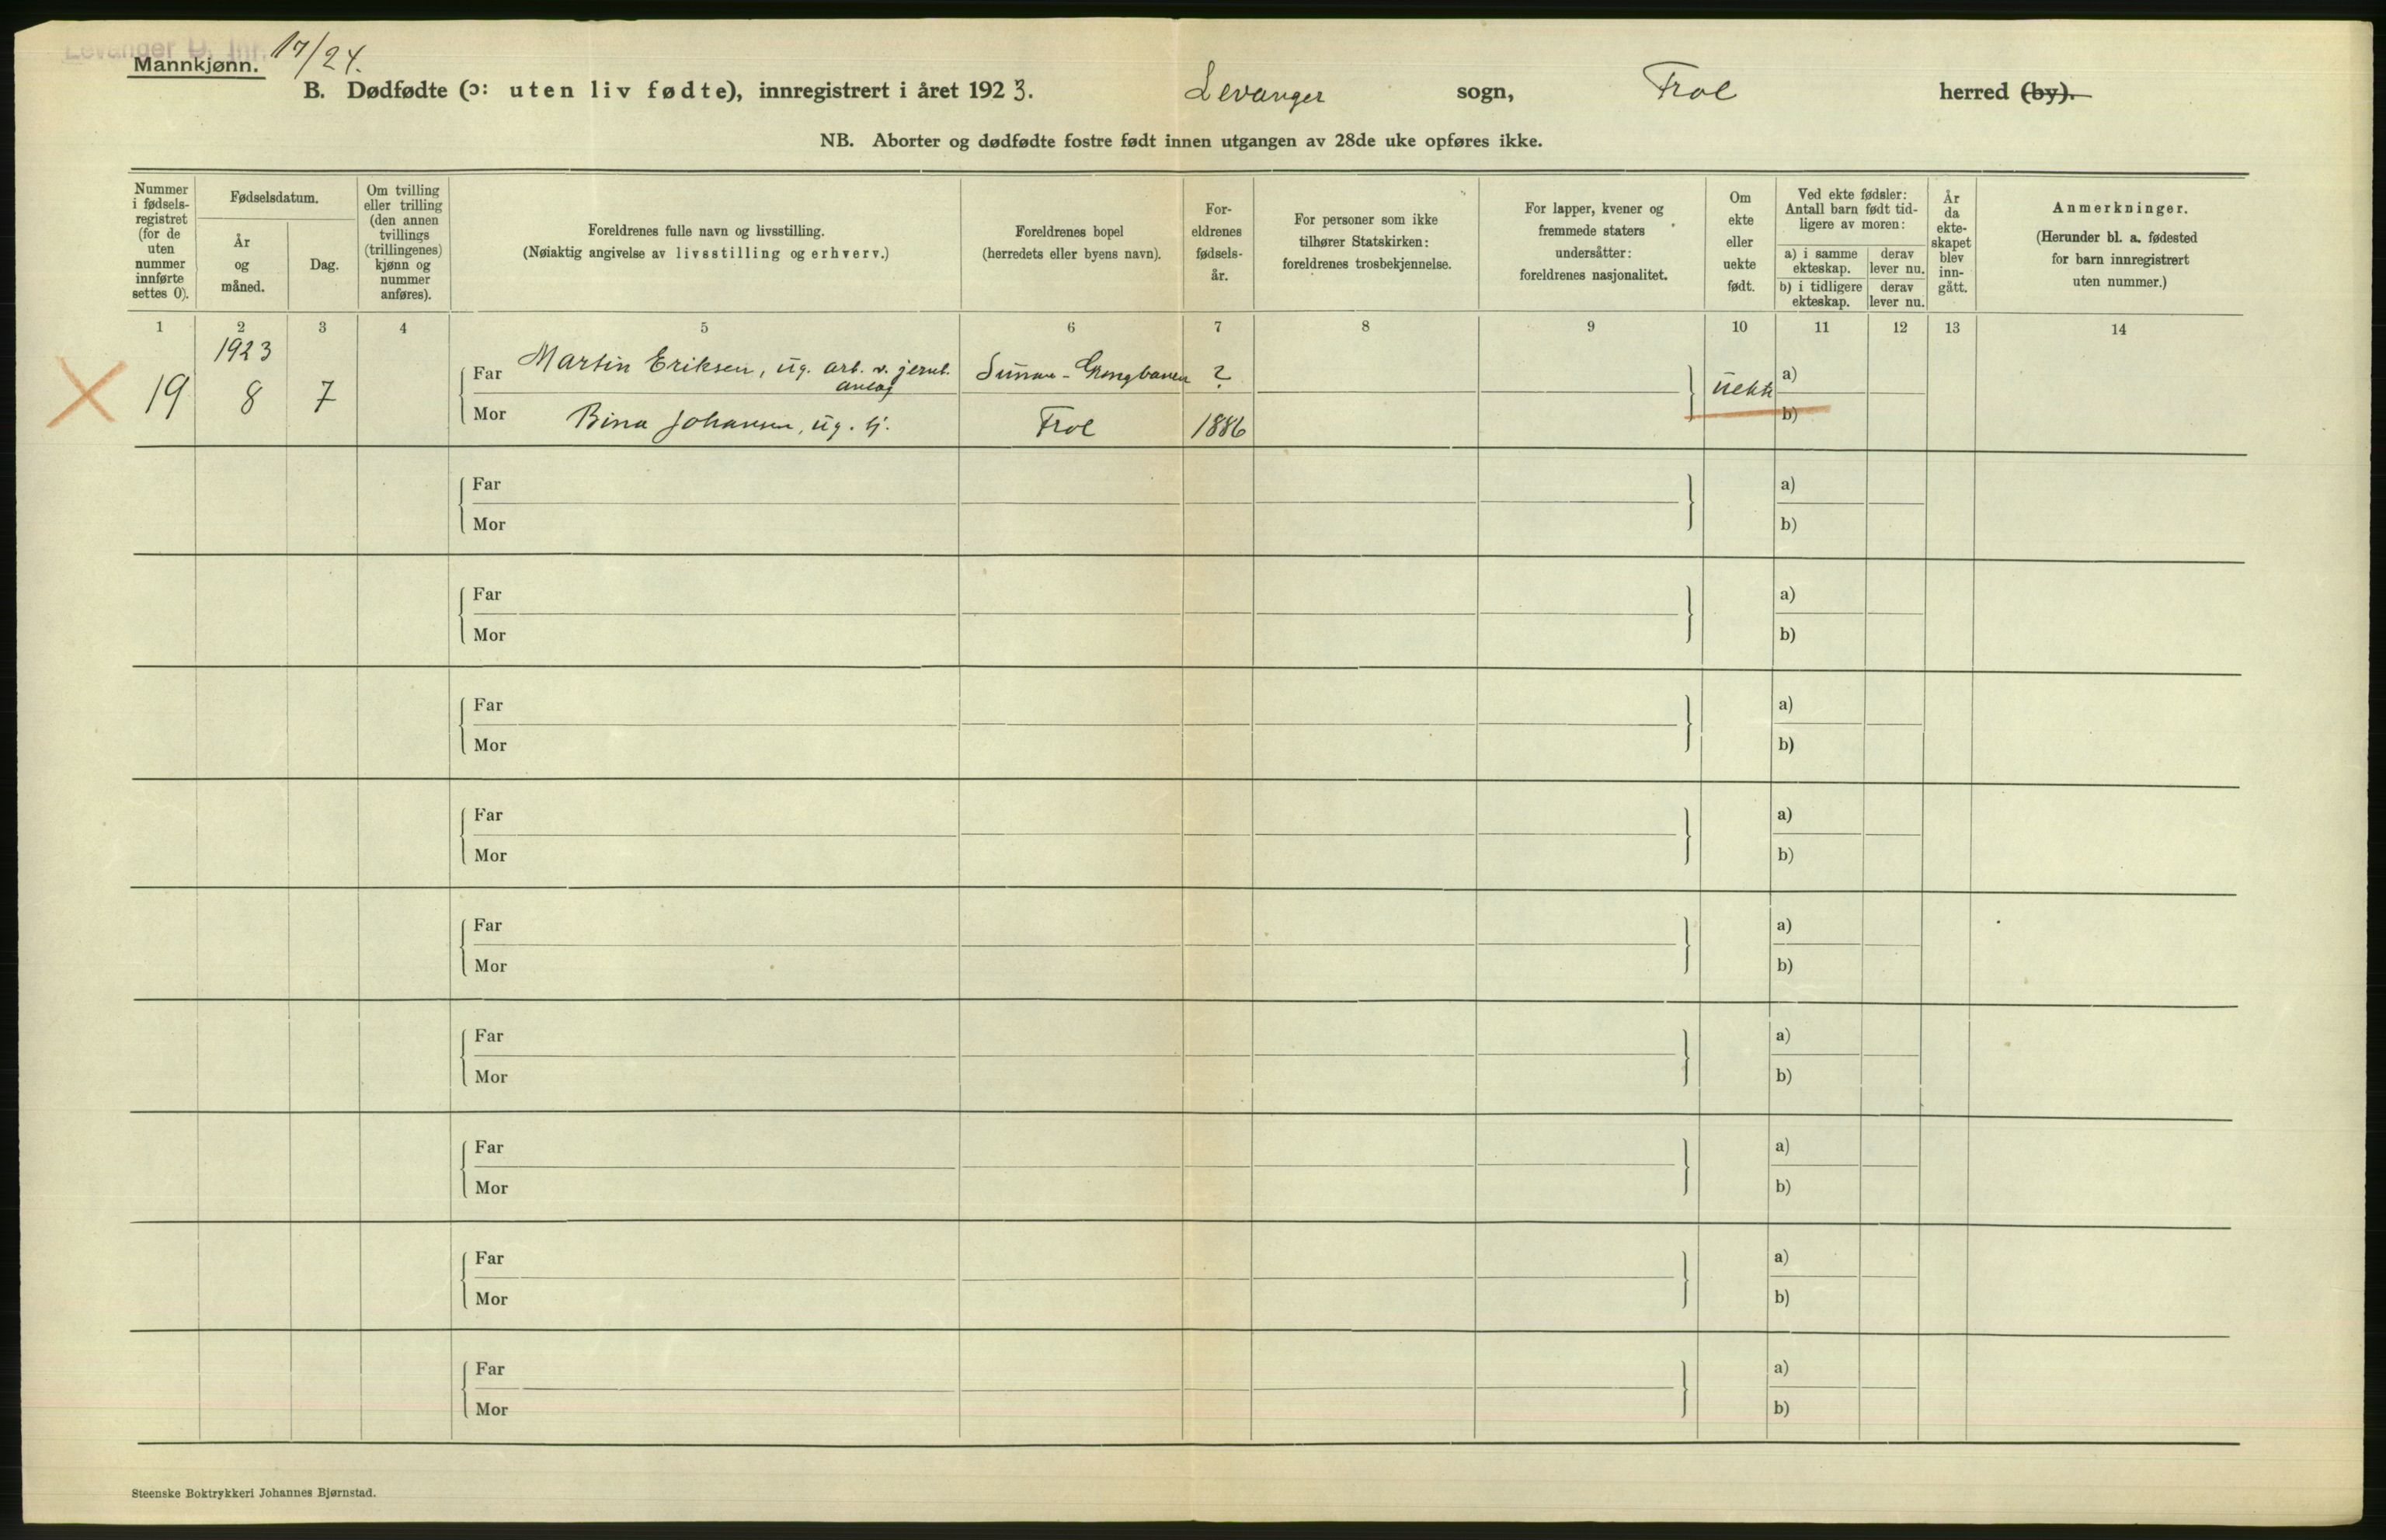 Levanger D. Inr. 17/24.
Mannkjønn.
B. Dødfødte (ɔ: uten liv fødte), innregistrert i året 1923. Levanger sogn, Frol herred (by).
NB. Aborter og dødfødte fostre født innen utgangen av 28de uke opføres ikke.
Nummer
i fødsels-
registret
(for de
uten
nummer
innførte
settes 0).
Fødselsdatum.
År
og
måned.
Dag.
Om tvilling
eller trilling
(den annen
tvillings
(trillingenes)
kjønn og
nummer
anføres).
Foreldrenes fulle navn og livsstilling.
(Nøiaktig angivelse av livsstilling og erhverv.)
Foreldrenes bopel
(herredets eller byens navn).
For-
eldrenes
fødsels-
år.
For personer som ikke
tilhører Statskirken:
foreldrenes trosbekjennelse.
For lapper, kvener og
fremmede staters
undersåtter:
foreldrenes nasjonalitet.
Om
ekte
eller
uekte
født.
Ved ekte fødsler:
Antall barn født tid-
ligere av moren:
a) i samme
ekteskap.
derav
lever nu.
b) i tidligere
ekteskap.
derav
lever nu.
År
da
ekte-
skapet
blev
inn-
gått.
Anmerkninger.
(Herunder bl. a. fødested
for barn innregistrert
uten nummer.)
1 2 3 4 5 6 7 8 9 10 11 12 13 14
1923
19 8 7
Far Martin Eriksen, ug. arb. v. jernb. Sunnan-Grongbanen ? uekte a)
anlæg
Mor Bina Johansen, ug. tj. Frol 1886 b)
Far a)
Mor b)
Far a)
Mor b)
Far a)
Mor b)
Far a)
Mor b)
Far a)
Mor b)
Far a)
Mor b)
Far a)
Mor b)
Far a)
Mor b)
Far a)
Mor b)
Steenske Boktrykkeri Johannes Bjørnstad.